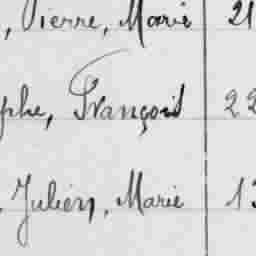 , Pierre, Marie 21
phe, François 22
, Julien, Marie 13